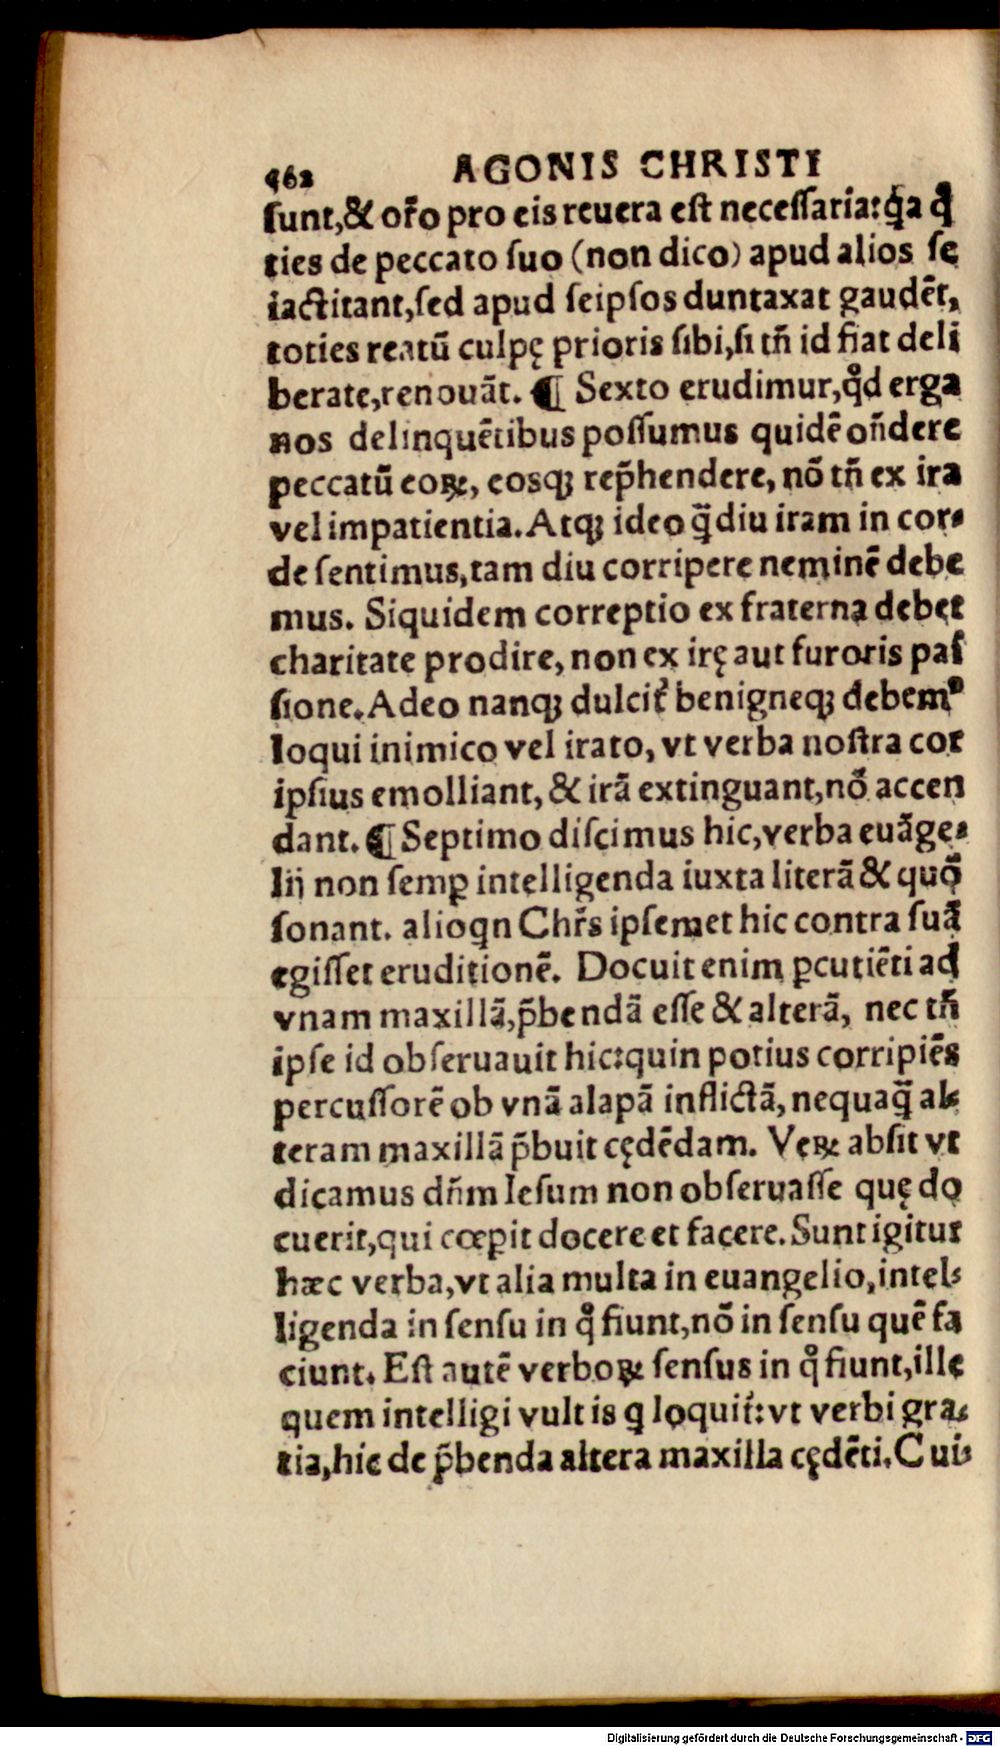 562 AGONIS CHRISTI
ſunt,& or̃o pro eis reuera eſt neceſſaria: qa q̃
ties de peccato ſuo (non dico) apud alios ſe
iactitant,ſed apud ſeipſos duntaxat gaudẽt,
toties reatũ culpę prioris ſibi,ſi tñ id fiat deli
berate,renouãt. ¶ Sexto erudimur,qd̓ erga
nos delinquẽtibus poſſumus quidẽ oñdere
peccatũ eoꝝ, eosqꝫ rep̃hendere, nõ tñ ex ira
vel impatientia. Atqꝫ ideo q̃diu iram in cor⸗
de ſentimus,tam diu corripere neminẽ debe
mus. Siquidem correptio ex fraterna debet
charitate prodire, non ex irę aut furoris paſ
ſione. Adeo nanqꝫ dulcit̓ benigneqꝫ debemꝰ
loqui inimico vel irato, vt verba noſtra cor
ipſius emolliant, & irã extinguant,nõ accen
dant. ¶ Septimo diſcimus hic,verba euãge⸗
lij non ſemꝑ intelligenda iuxta literã & quõ
ſonant. alioqn Chr̃s ipſemet hic contra ſuã
egiſſet eruditionẽ. Docuit enim ꝑcutiẽti ad
vnam maxillã,p̃bendã eſſe & alterã, nec tñ
ipſe id obſeruauit hic:quin potius corripiẽs
percuſſorẽ ob vnã alapã inflictã, nequaq̃ al⸗
teram maxillã p̃buit cędẽdam. Veꝝ abſit vt
dicamus dñm Ieſum non obſeruaſſe quę do
cuerit,qui cœpit docere et facere. Sunt igitur
hæc verba,vt alia multa in euangelio,intel⸗
ligenda in ſenſu in q̊ fiunt,nõ in ſenſu quẽ fa
ciunt. Eſt autẽ verboꝝ ſenſus in q̊ fiunt,ille
quem intelligi vult is q loquit̃: vt verbi gra⸗
tia,hic de p̃benda altera maxilla cędẽti. Cui⸗
Digitalisierung gefördert durch die Deutsche Forschungsgemeinschaft - DFG